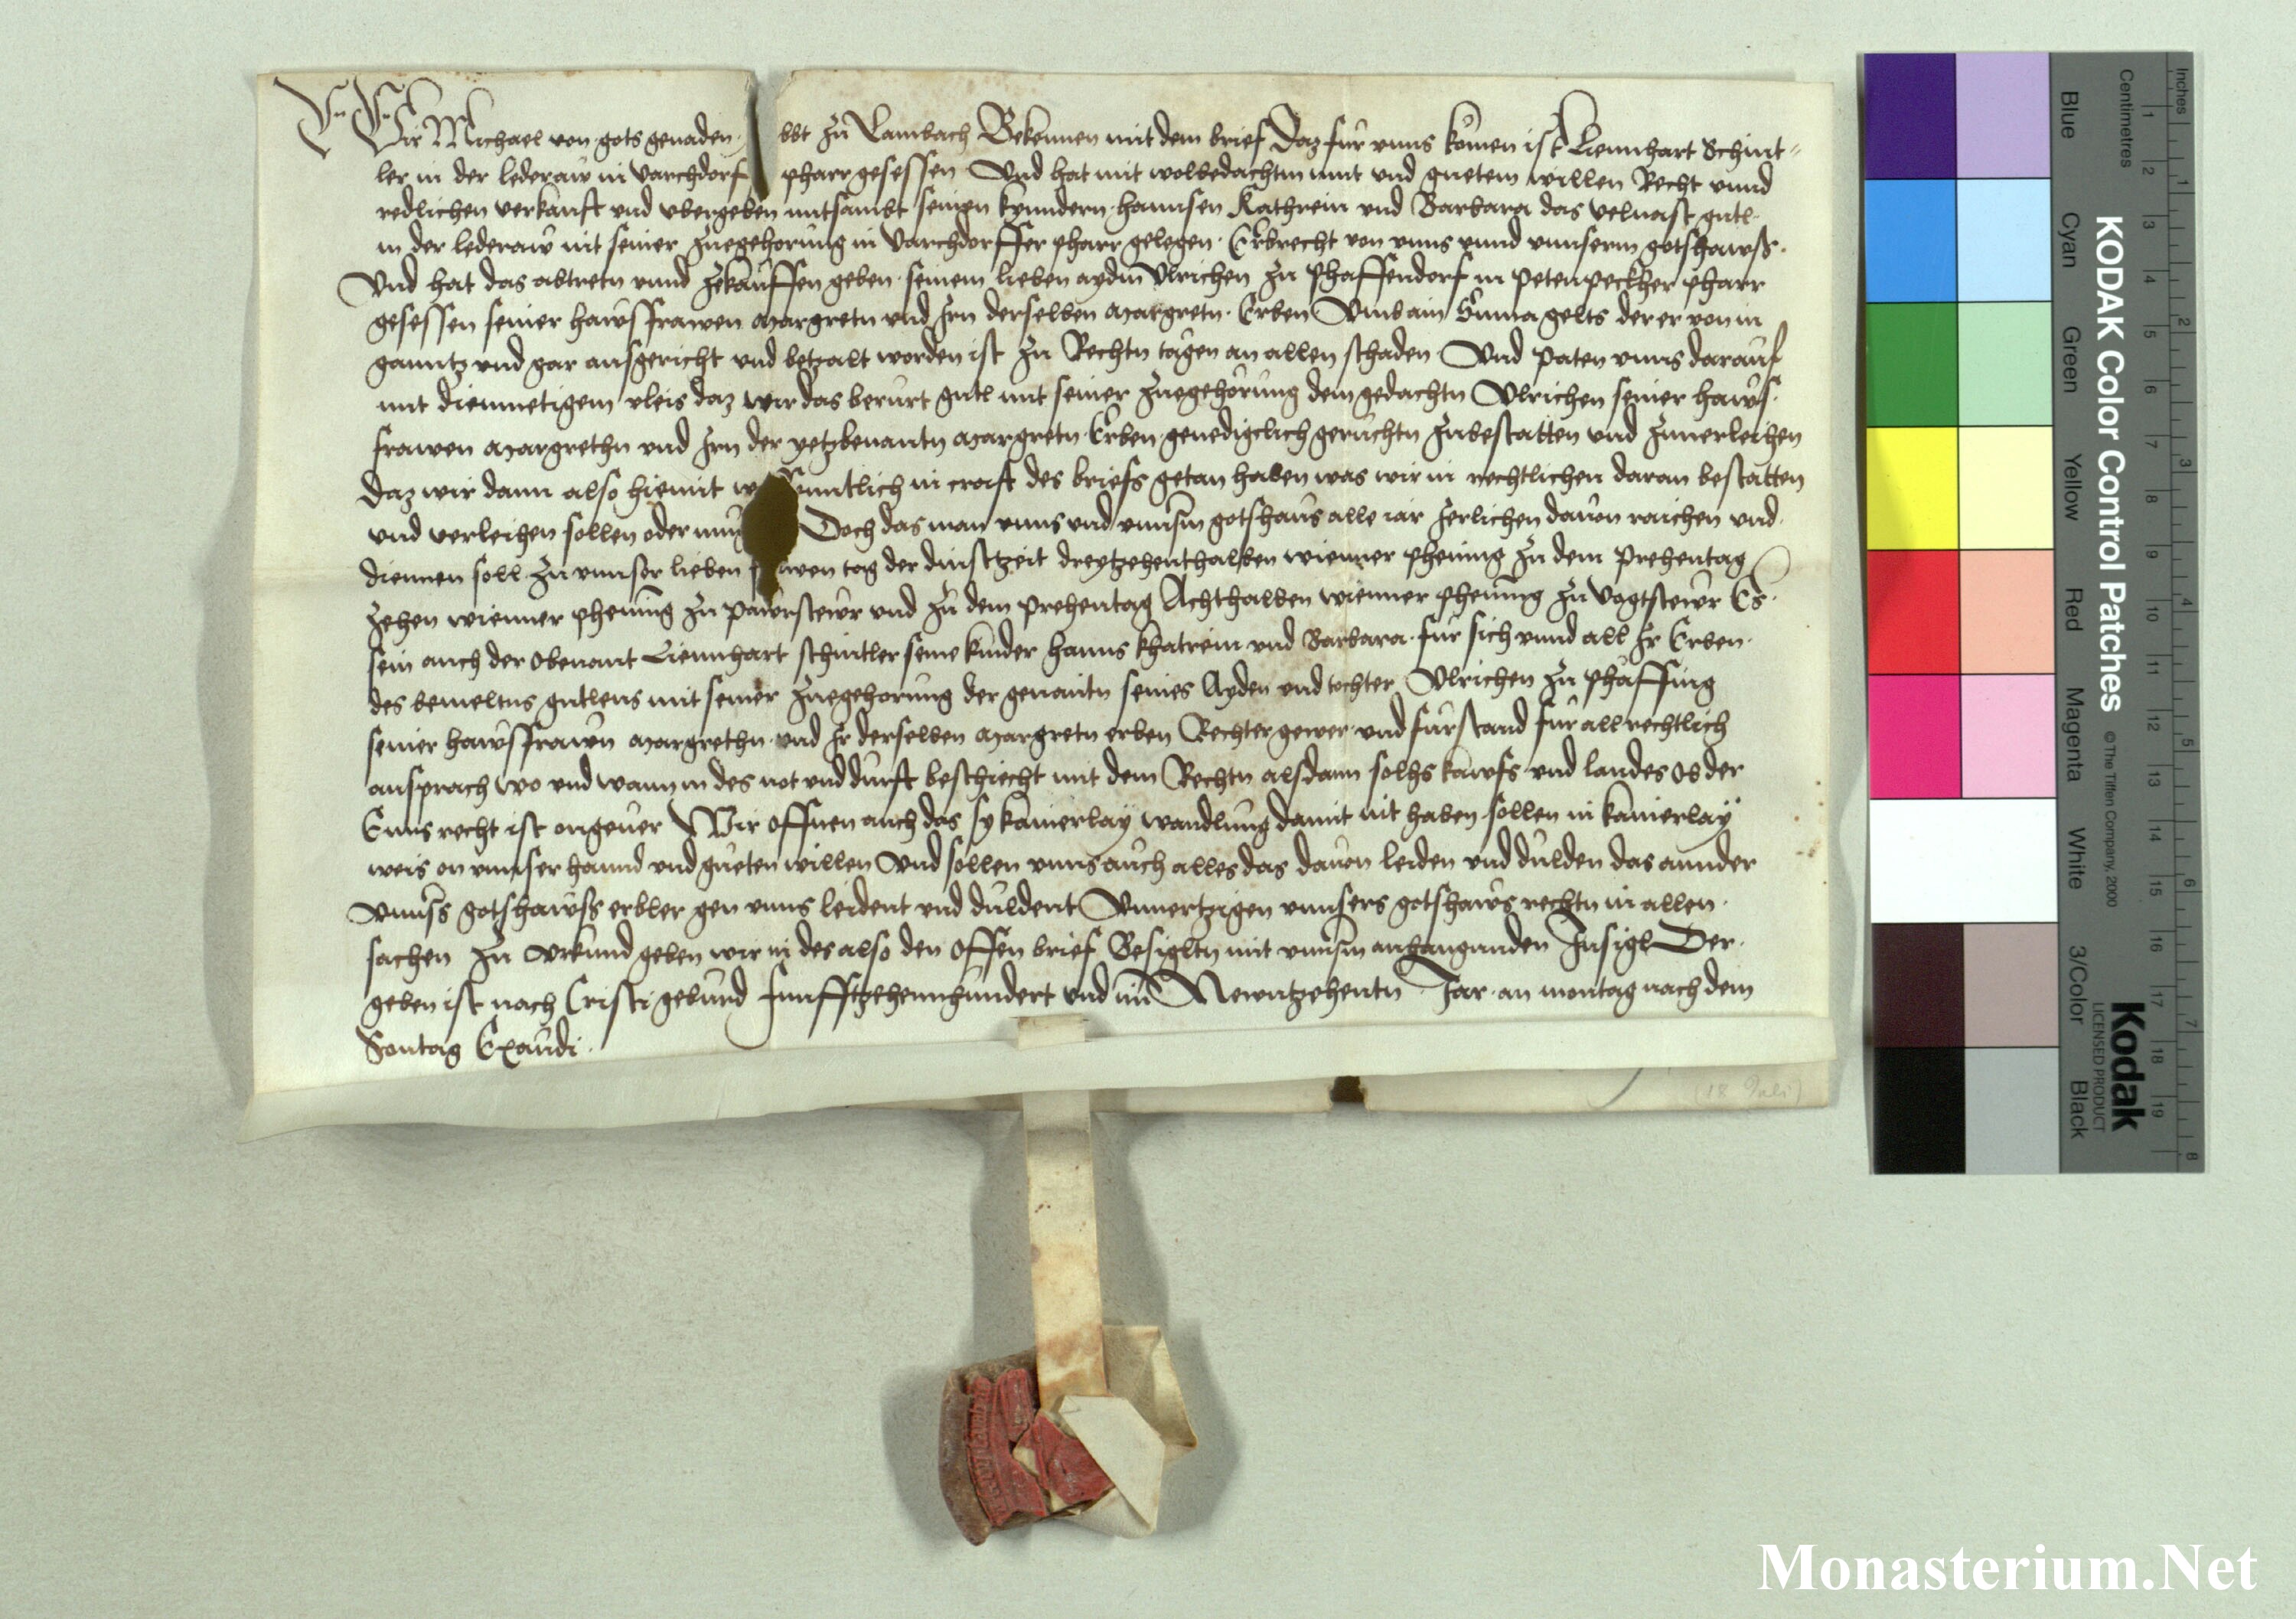 Wir Michael von gots genaden bbt zu Lambach Bekennen mit dem brief Daz fur vnns komen ist Liennhart Schint-
ler in der lederaw in Varchdorf pharr gesessen Vnd hat mit wolbedachtm mut vnd guetem willen Recht vnnd
redlichen verkaufft vnd vbergeben mitsambt seinen kynndern hannsen Kathrein vnd Barbara das gutl
in der lederaw mit seiner zuegehorung in Varchdorffer pharr gelegen Erbrecht von vnns vnnd vnnserm gotshawss
Vnd hat das abtretn vnnd zekauffen geben seinem lieben aydm Vlrichen zu Phaffendorf in Petenpeckher pharr
gesessen seiner hawsfrawen Margretn vnd Irn derselben Margretn Erben Vmb ain Suma gelts der er von in
ganntz vnd gar ausgericht vnd betzalt worden ist zu Rechtn tagen an allen schaden Vnd paten vnns darauf
mit diemuetigem vleis daz wir das berurt gutl mit seiner zuegehorung dem gedachtn Vlrichen seiner haws
frawen Margrethn vnd Irn der yetzbenantn Margretn Erben genedigclich geruchtn zubestatten vnd zuuerleihen
Daz wir dann also hiemit wissenntlich in craft des briefs getan haben was wir in rechtlichen daran bestatten
vnd verleihen sollen oder mug Doch das man vnns vnd vnnserm gotshaus alle iar Jerlichen dauon raichen vnd
diennen soll zu vnnser lieben frawen tag der dinstzeit dreytzehenthalben wienner phening zu dem Prehentag
zehen wienner phening zu pawrstewr vnd zu dem prehentag Achthalben wienner phening zu Vogtstewr Es
sein auch der Obenant Liennhart schintler seine kinder hanns khatrein vnd Barbara fur sich vnnd all Ir Erben
des bemeltns gutlens mit seiner zuegehorung der genantn seines Ayden vnd tochter Vlrichen zu Phaffing
seiner hawsfrawn Margrethn vnd Ir derselben Margretn erben Rechter gewer vnd furstand fur all rechtlich
ansprach wo vnd wann in des not vnd durft beschiecht mit dem Rechtn alsdann solhs kawfs vnd landes Ob der
Enns recht ist ongeuer Wir offnen auch das sy kainerlay wandlung damit nit haben sollen in kainerlay
weis on vnnser hannd vnd gueten willen Vnd sollen vnns auch alles das dauon leiden vnd dulden das annder
vnnsers gotshawss erbler gen vnns leident vnd duldent Vnuertzigen vnnsers gotshaws rechtn in allen
sachen Zu Vrkund geben wir in des also den offen brief Besigltn mit vnnserm anhangunden Insigl Der
geben ist nach Cristi geburd funfftzehennhundert vnd im Newntzehentn Jar an montag nach dem
Sontag Exaudi
(18 Juli)
KODAK Color Control Patches
© The Tiffen Company, 2000
Kodak
LICENSED PRODUCT
Inches
Centimetres
Blue
Cyan
Green
Yellow
Red
Magenta
White
3/Color
Black
Monasterium.Net